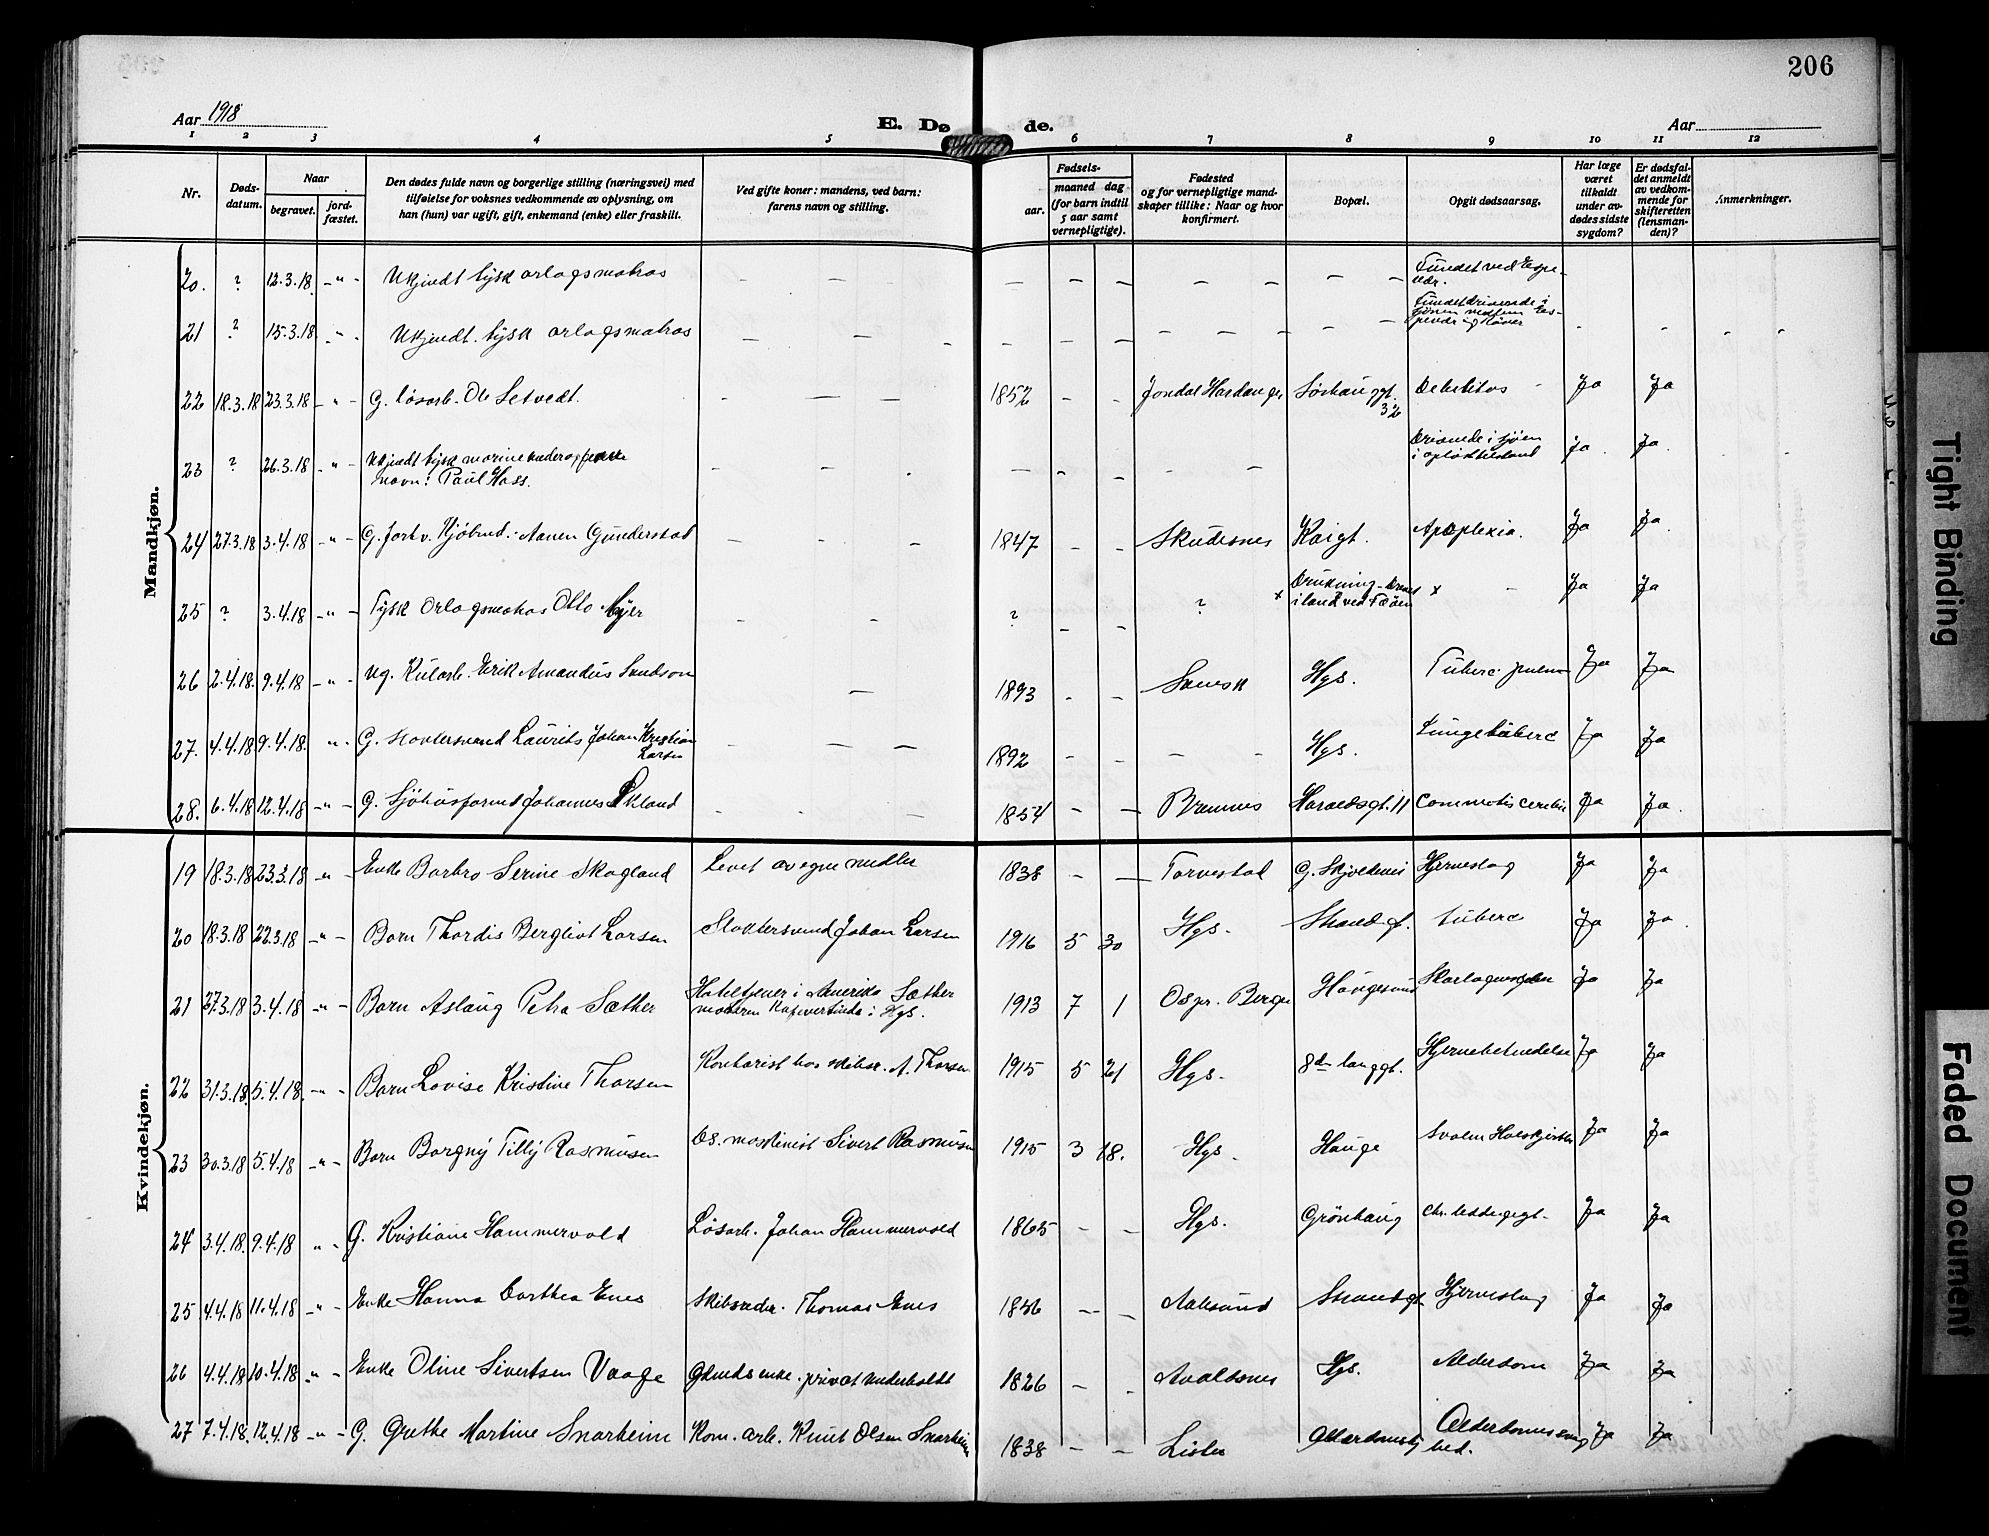 206
Aar 1918
E. Dø de.
Aar
1 2 3 4 5 6 7 8 9 10 11 12
Nr.
Døds-
datum.
Naar
begravet.
jord-
fæstet.
Den dødes fulde navn og borgerlige stilling (næringsvei) med
tilføielse for voksnes vedkommende av oplysning, om
han (hun) var ugift, gift, enkemand (enke) eller fraskilt.
Ved gifte koner: mandens, ved barn:
farens navn og stilling.
Fødsels-
aar.
maaned dag
(for barn indtil
5 aar samt
vernepligtige).
Fødested
og for vernepligtige mand-
skaper tillike: Naar og hvor
konfirmert.
Bopæl.
Opgit dødsaarsag.
Har læge
været
tilkaldt
under av-
dødes sidste
sygdom?
Er dødsfal-
det anmeldt
av vedkom-
mende for
skifteretten
(lensman-
den)?
Anmerkninger.
Mandkjøn.
20. ? 12.3.18 - " - Ukjendt tysk orlogsmatros - - - - - - - - - - Fundet ved Espe-
vær.
21 ? 15.3.18 - " - Ukjendt tysk orlogsmatros - - - - - - - - - - Fundet drivende i
sjøen mellem Es-
pevær og Røvær
22 18.3.18 23.3.18 - " - G. løsarb. Ole Setvedt. - - - 1852 - - Jondal Hardanger Sørhauggt.
32 Debilitas Ja Ja
23 ? 26.3.18 - " - Ukjendt tysk marine
navn: Paul Hass. - - - - - - - Drivende i sjøen
i opløst tilstand Ja Ja
24 27.3.18 3.4.18 - " - G. forhv. Kjøbmd. Aanen Gunderstad - - - 1847 - - Skudesnes Kaigt. Apoplexia. Ja Ja
25 ? 3.4.18 - " - Tysk Orlogsmatros Otto - - ? - - ? x Drukning - Drevet
iland ved Fæøen x - Ja Ja
26 2.4.18. 9.4.18 - " - Ug. Kularb. Erik Amandus - 1893 - - Svensk Hgs. Tuberc. pulm Ja Ja
27. 4.4.18 9.4.18. " - G. Slaktersvend Laurits Johan Kristian
Larsen - - - 1892 - - - - Hgs. Lungetuberc Ja Ja
28. 6.4.18 12.4.18 - " - G. Sjøhusformd Johannes Økland - - - 1854 - - Bremnes Haraldsgt. 11 Commotis cerebri Ja Ja
Kvindekjøn.
19 18.3.18 23.3.18 - " - Enke Barbro Serine Skogland Levet av egne midler 1838 - - Torvestad G. Skjoldevei Hjerneslag Ja Ja
20 18.3.18 22.3.18 - " - Barn Thordis Bergliot Larsen Slaktersvend Johan Larsen 1916 5 30 Hgs. Strandgt. tuberc Ja Ja
21 27.3.18 3.4.18 - " - Barn Aslaug Petra Sæther Hoteltjener i Amerika Sæther
moderen Kafévertinde i Hgs. 1913 7 1 Bergen Haugesund Skarlagensfeber Ja Ja
22 31.3.18. 5.4.18. - " - Barn Lovise Kristine Thorsen Kontorist hos skibsr. A. Thorsen 1915 5 21 Hgs. langgt. Hjernebetændelse Ja Ja
23 30.3.18 5.4.18 - " - Barn Borgny Tilly Rasmusen Ds. maskinist Sivert Rasmusen 1915 3 18. Hgs. Hauge Halskjirtler Ja Ja
24 3.4.18. 9.4.18 " - G. Kristiane Hammervold Løsarb. Johan Hammervold 1865 - - Hgs. Grønhaug chr. leddegigt. Ja Ja
25 4.4.18 11.4.18 - " - Enke Hanna Dorthea Enes Skibsreder Thomas Enes 1856 - - Aalesund Strandgt. Hjerneslag Ja Ja
26 4.4.18 10.4.18 " - Enke Oline Sivertsen Vaage enke. privat underholdt 1826 - - Avaldsnes Hgs. Alderdom Ja Ja
27 7.4.18. 12.4.18 - " - G. Grethe Martine Snarheim Kom. arb. Knut Olsen Snarheim 1838 - - Lister Alderdomshj Alderdomssvag
hed. Ja Ja
Tight Binding
Faded Document